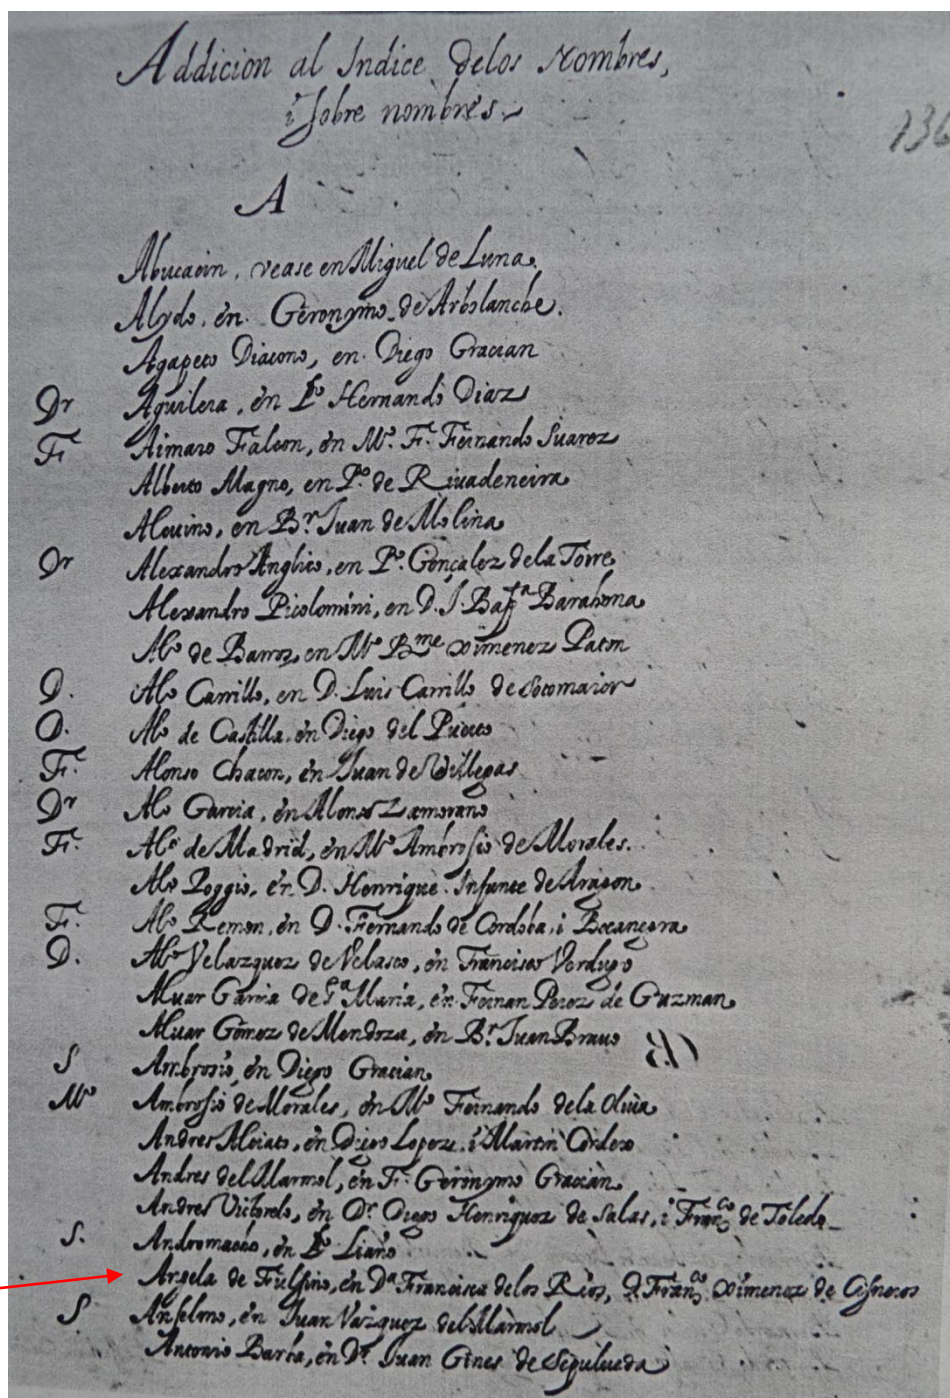 Addicion al Indice delos Nombres,
i sobre nombres.
136
A
Abucacin, vease en Miguel de Luna.
Alydo, en Geronymo de Arbolanche.
Agapeto Diacono, en Diego Gracian
Dr Aguilera, en Hernando Diaz
F. Aimaro Falcon, en Mº. F. Fernando Suarez
Alberto Magno, en Pº. de Riuadeneira
Alcuino, en Br. Juan de Molina
Dr Alexandro Anglico, en Pº. Gonçalez dela Torre
Alexandro Picolomini, en D. J. Bapta Barahona
Alº de Barros, en Mº Bme Ximenez Paton
D. Alº Carrillo, en D. Luis Carrillo de Sotomaior
D. Alº de Castilla, en Diego del Puerto
F. Alonso Chacon, en Juan de Villegas
Dr Alº Garcia, en Alonso Zamorano
F. Alº de Madrid, en Mº Ambrosio de Morales.
Alº Poggio, en D. Henrique Infante de Aragon
F. Alº Remon, en D. Fernando de Cordoba, i Bocangera
D. Alº Velazquez de Velasco, en Francisco Verdugo
Aluar Garcia de Sª Maria, en Fernan Perez de Guzman
Aluar Gomez de Mendoza, en Br. Juan Brauo
S Ambrosio, en Diego Gracian
Mº Ambrosio de Morales, en Mº Fernando dela Oliua
Andres Alciato, en Diego Lopez, i Martin Cordero
Andres del Marmol, en F. Geronymo Gracian
Andres Victorelo, en Dr. Diego Henriquez de Salas, i Franco de Toledo
S. Andromacho, en Liaño
Angela de Fulgino, en Dª Francisca delos Rios, D. Franco Ximenez de Cisneros
S Anselmo, en Juan Vazquez del Marmol
Antonio Barba, en Dr. Juan Gines de Sepulueda